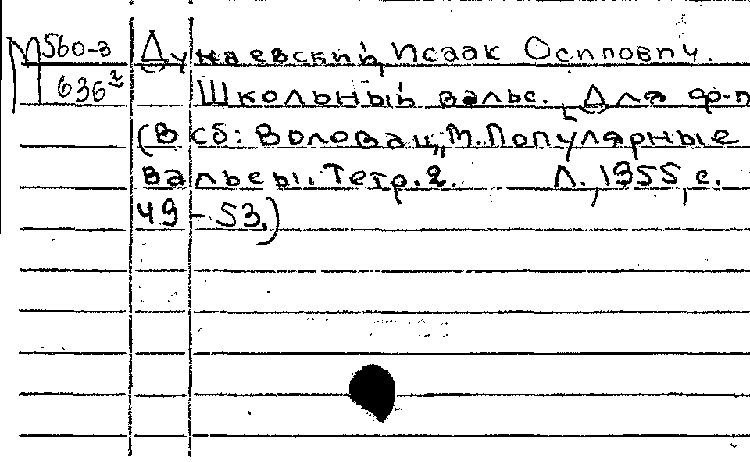 М560-3 Дунаевский, Исаак Осипович.
636² Школьный вальс. Для ф-п
(В сб: Воловац, М. Популярные
вальсы. Тетр. 2. Л., 1955, с.
49-53.)